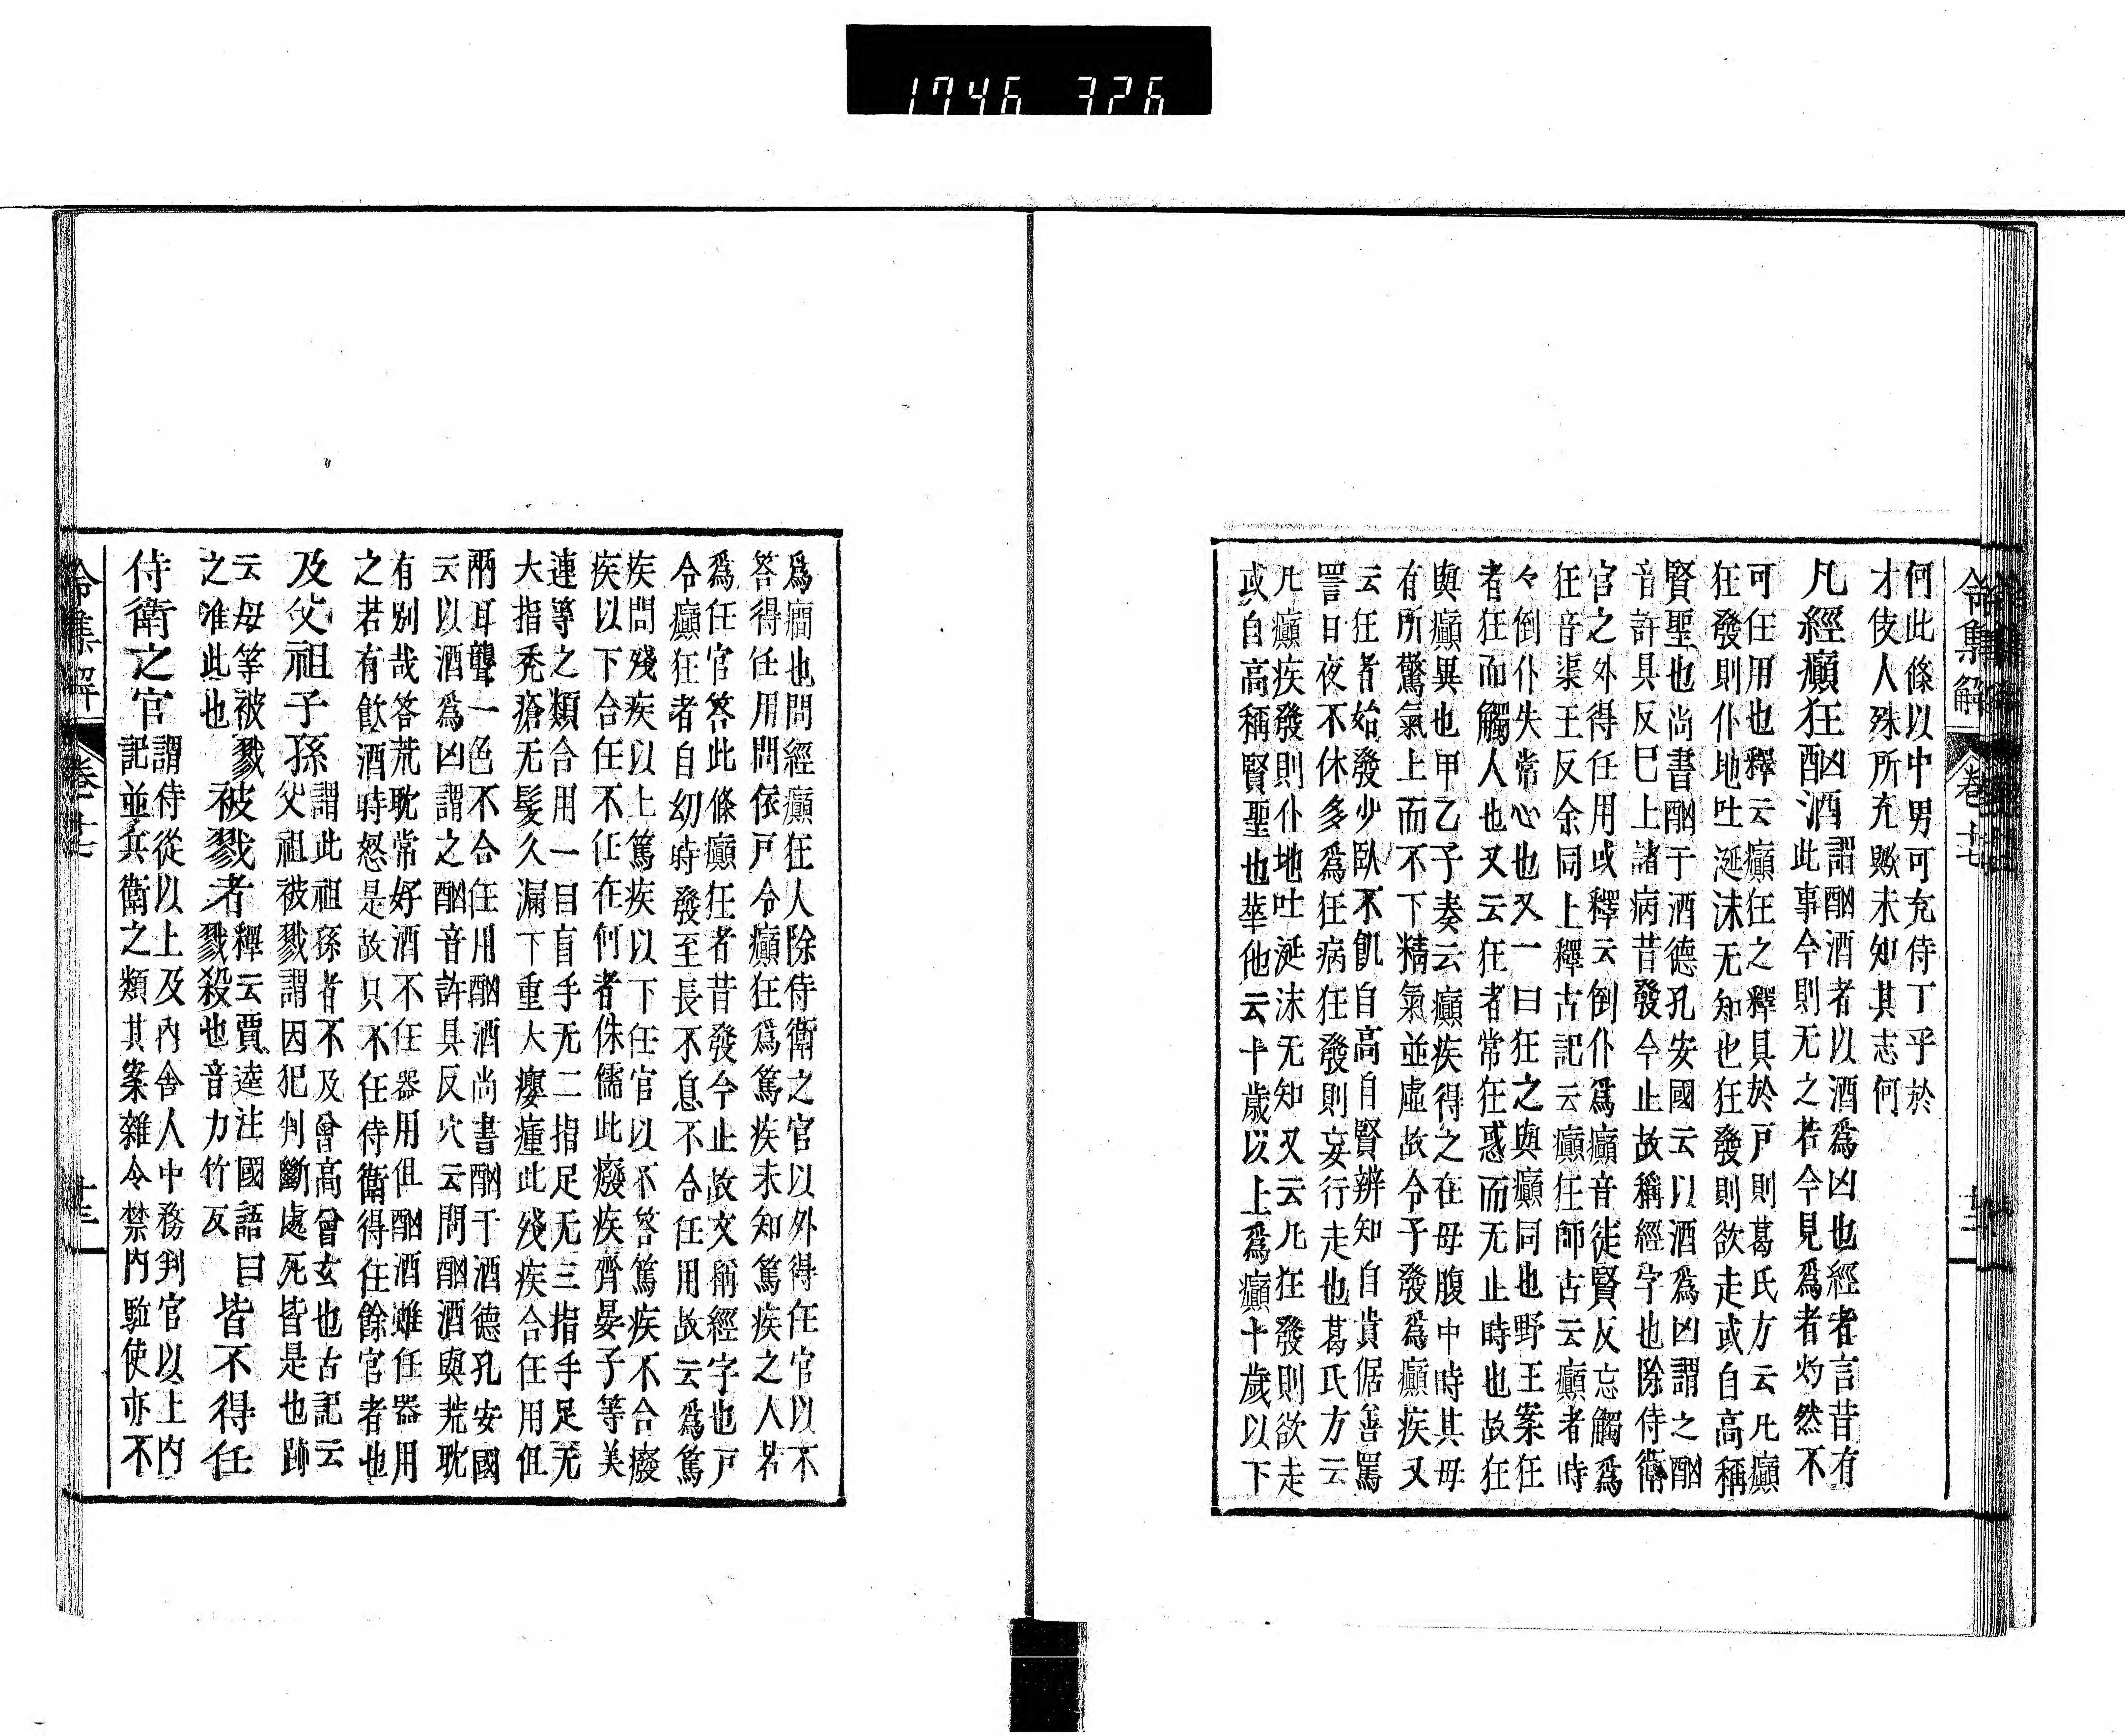 1746 326
令集解 卷十七
何此條以中男可充侍丁乎於
才伎人殊所充歟未知其志何
凡經癲狂酗酒
謂酗酒者以酒爲凶也經者言昔有
此事今則无之若今見爲者灼然不
可任用也釋云癲狂之釋具於戸則葛氏方云凡癲
狂發則仆地吐涎沫无知也狂發則欲走或自高稱
賢聖也尚書酗于酒德孔安國云以酒爲凶謂之酗
音許具反巳上諸病昔發今止故稱經字也除侍衛
官之外得任用或釋云倒仆爲癲音徒賢反忘觸爲
狂音渠王反余同上釋古記云癲狂師古云癲者時
々倒仆失常心也又一曰狂之與癲同也野王案狂
者狂而觸人也又云狂者常狂惑而无止時也故狂
與癲異也甲乙予奏云癲疾得之在母腹中時其母
有所驚氣上而不下精氣並虛故令子發爲癲疾又
云狂者始發少臥不飢自高自賢辨知自貴倨善罵
詈日夜不休多爲狂病狂發則妄行走也葛氏方云
凡癲疾發則仆地吐涎沫无知又云凡狂發則欲走
或自高稱賢聖也華他云十歲以上爲癲十歲以下
爲癎也問經癲狂人除侍衛之官以外得任官以不
答得任用問依戸令癲狂爲篤疾未知篤疾之人若
爲任官答此條癲狂者昔發今止故文稱經字也戸
令癲狂者自幼時發至長不息不合任用故云爲篤
疾問殘疾以上篤疾以下任官以不答篤疾不合癈
疾以下合任不任在何者侏儒此癈疾齊晏子等美
連等之類合用一目盲手无二指足无三指手足无
大指秃瘡无髮久漏下重大癭瘇此殘疾合任用但
兩耳聾一色不合任用酗酒尚書酗于酒德孔安國
云以酒爲凶謂之酗音許具反穴云問酗酒與荒耽
有別哉答荒耽常好酒不任器用但酗酒雖任器用
之若有飮酒時怒是故只不任侍衛得任餘官者也
及父祖子孫
謂此祖孫者不及曾高曾玄也古記云
父祖被戮謂因犯判斷處死皆是也跡
云母等被戮
之准此也
被戮者
釋云賈逵注國語曰
戮殺也音力竹反
皆不得任
侍衛之官
謂侍從以上及內舍人中務判官以上內
記並兵衛之類其案雜令禁內駈使亦不
令集解 卷十七